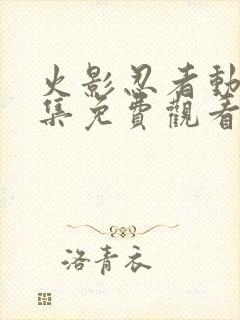 火影忍者動
集免費觀看
洛青衣